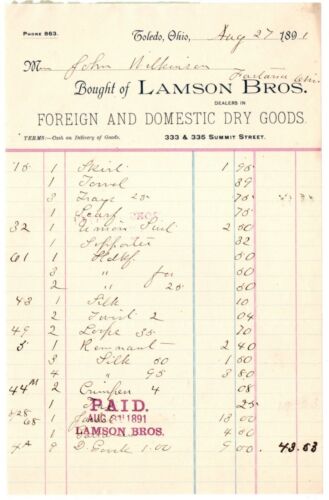 PHONE 863.
Toledo, Ohio, Aug 27 1891
M John Wilkinson
Fostoria Ohio
Bought of LAMSON BROS.
DEALERS IN
FOREIGN AND DOMESTIC DRY GOODS.
TERMS:—Cash on Delivery of Goods. 333 & 335 SUMMIT STREET.
15 1 Skirt 1 95
1 Towel 39
3 Trays 25 75
1 Scarf 75
32 1 Union Suit 2 00
1 Supporter 32
61 1 Hdkf 50
3 " for 50
2 " 25 50
43 1 Silk 10
2 Twist 2 04
49 2 Loops 35 70
5 1 Remnant 2 40
3 Silk 50 1 50
4 " 95 3 80
44 M 2 Crimpers 4 08
1 25
68 13 00
1 4 50
9 1.00 9 00 43.03
PAID.
AUG 31 1891
LAMSON BROS.